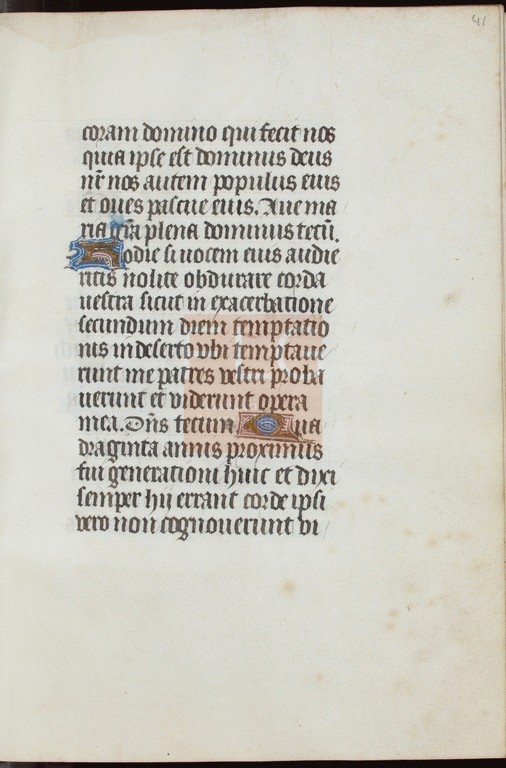 41
coram domino qui fecit nos
quia ipse est dominus deus
nr̄ nos autem populus eius
et oues pascue eius. Aue ma
ria gr̄a plena dominus tecū.
Hodie si uocem eius audie
ritis nolite obdurare corda
uestra sicut in exacerbatione
secundum diem temptatio
nis in deserto vbi temptaue
runt me patres vestri proba
uerunt et viderunt opera
mea. Dn̄s tecum Qua
draginta annis proximus
fui generationi huic et dixi
semper hij errant corde ipsi
vero non cognouerunt vi